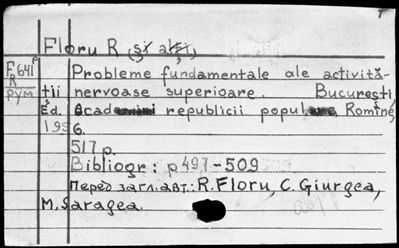 Floru R (şi alţi,)
F641
R
рум
Probleme fundamentale ale activită-
ţii nervoase superioare. Bucureşti,
Ed. Academiei republicii populare Romîne,
195
6.
517 p.
Bibliogr: p 497-509
Перед загл. авт.: R. Floru, C. Giurgea,
M. Saragea.